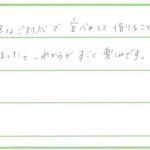 なご対応で安心して借りること
ました。これからがすごく楽しみです。